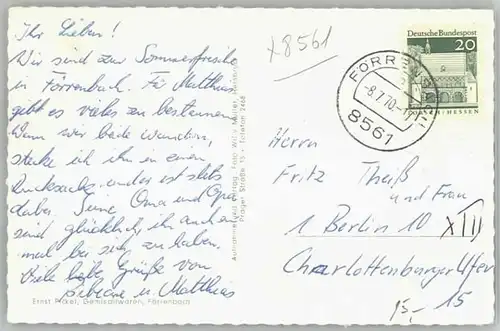 Ihr Lieben!
Wir sind zur Sommerfrische
in Förrenbach. Für Matthias
gibt es vieles zu bestaunen
Wenn wir beide wandern,
stecke ich ihn in einen
Rucksack, und er ist stets
dabei. Seine Oma und Opa
sind glücklich, ihn auch
mal bei sich zu haben.
Viele liebe Grüße von
u Matthias
Ernst Pickel, Gemischtwaren, Förrenbach
Aufnahme und Verlag: Foto
Prager Straße 15 - Telefon 2468
x8561
FÖRRENBACH
-8.7.70-1
8561
Deutsche Bundespost
20
LORSCH/HESSEN
Herrn
Fritz Theiß
und Frau
1 Berlin 10 XIII
Charlottenburger Ufer
15